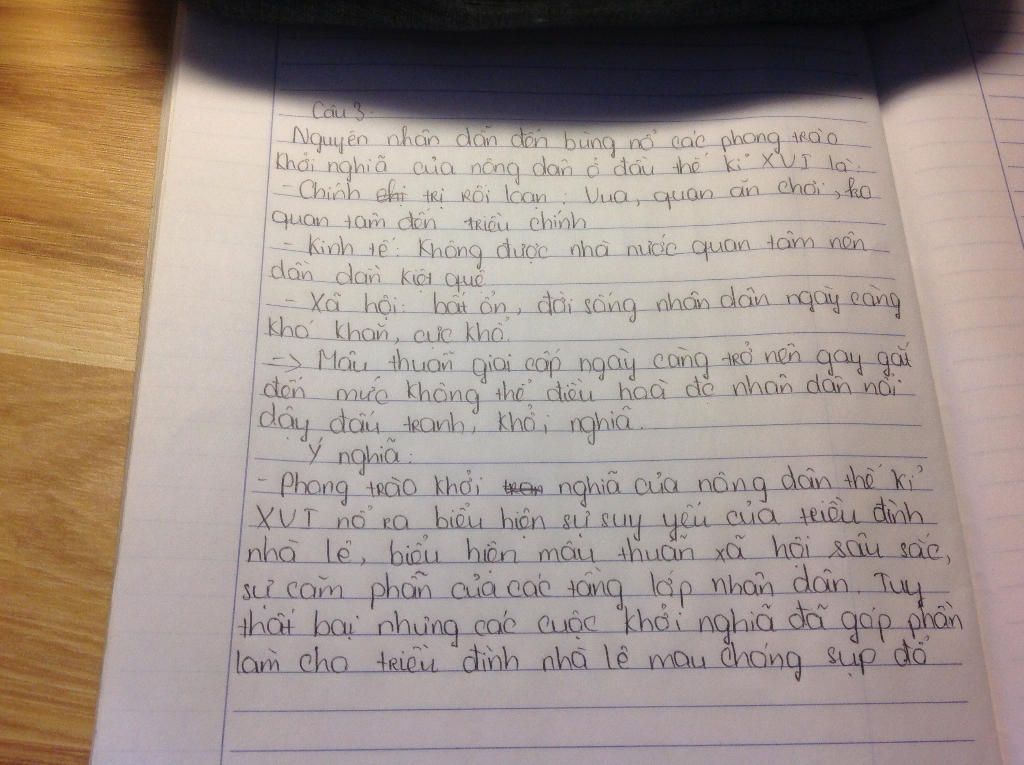 Câu 3.
Nguyên nhân dẫn đến bùng nổ các phong trào
khởi nghĩa của nông dân ở đầu thế kỉ XVI là:
- Chính trị rối loạn: Vua, quan ăn chơi, ko
quan tâm đến triều chính
- Kinh tế: Không được nhà nước quan tâm nên
dần dần kiệt quệ
- Xã hội: bất ổn, đời sống nhân dân ngày càng
khó khăn, cực khổ.
-> Mâu thuẫn giai cấp ngày càng trở nên gay gắt
đến mức không thể điều hoà để nhân dân nổi
dậy đấu tranh, khởi nghĩa.
Ý nghĩa:
- Phong trào khởi nghĩa của nông dân thế kỉ
XVI nổ ra biểu hiện sự suy yếu của triều đình
nhà lê, biểu hiện mâu thuẫn xã hội sâu sắc,
sự căm phẫn của các tầng lớp nhân dân. Tuy
thất bại nhưng các cuộc khởi nghĩa đã góp phần
làm cho triều đình nhà lê mau chóng sụp đổ